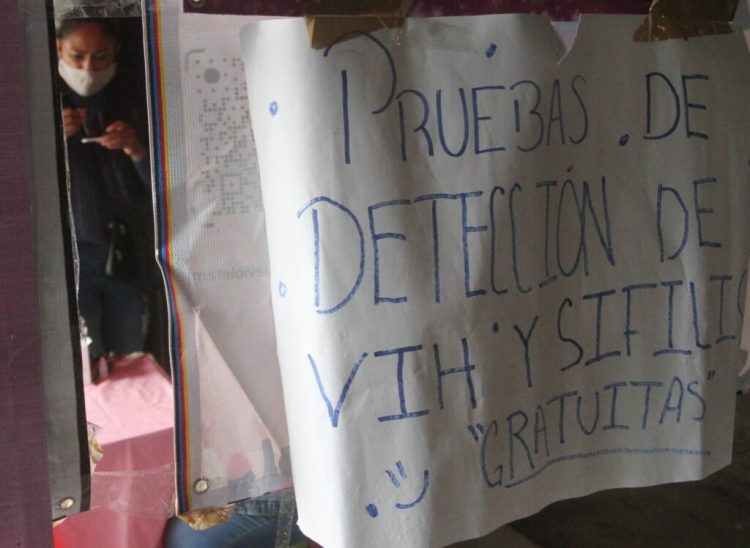 PRUEBAS DE
DETECCIÓN DE
VIH Y SIFILI
"GRATUITAS"